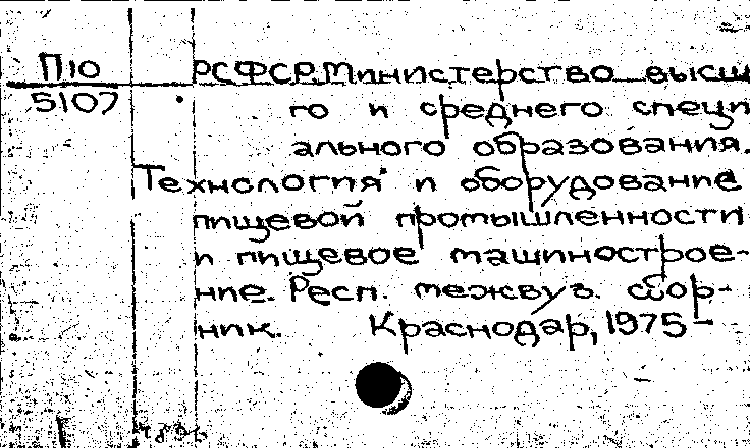 П10
5107
РСФСР. Министерство высш
го и среднего специ
ального образования.
Технология и оборудование
пищевой промышленности
и пищевое машинострое-
ние. Респ. межвуз. сбор-
ник. Краснодар, 1975-